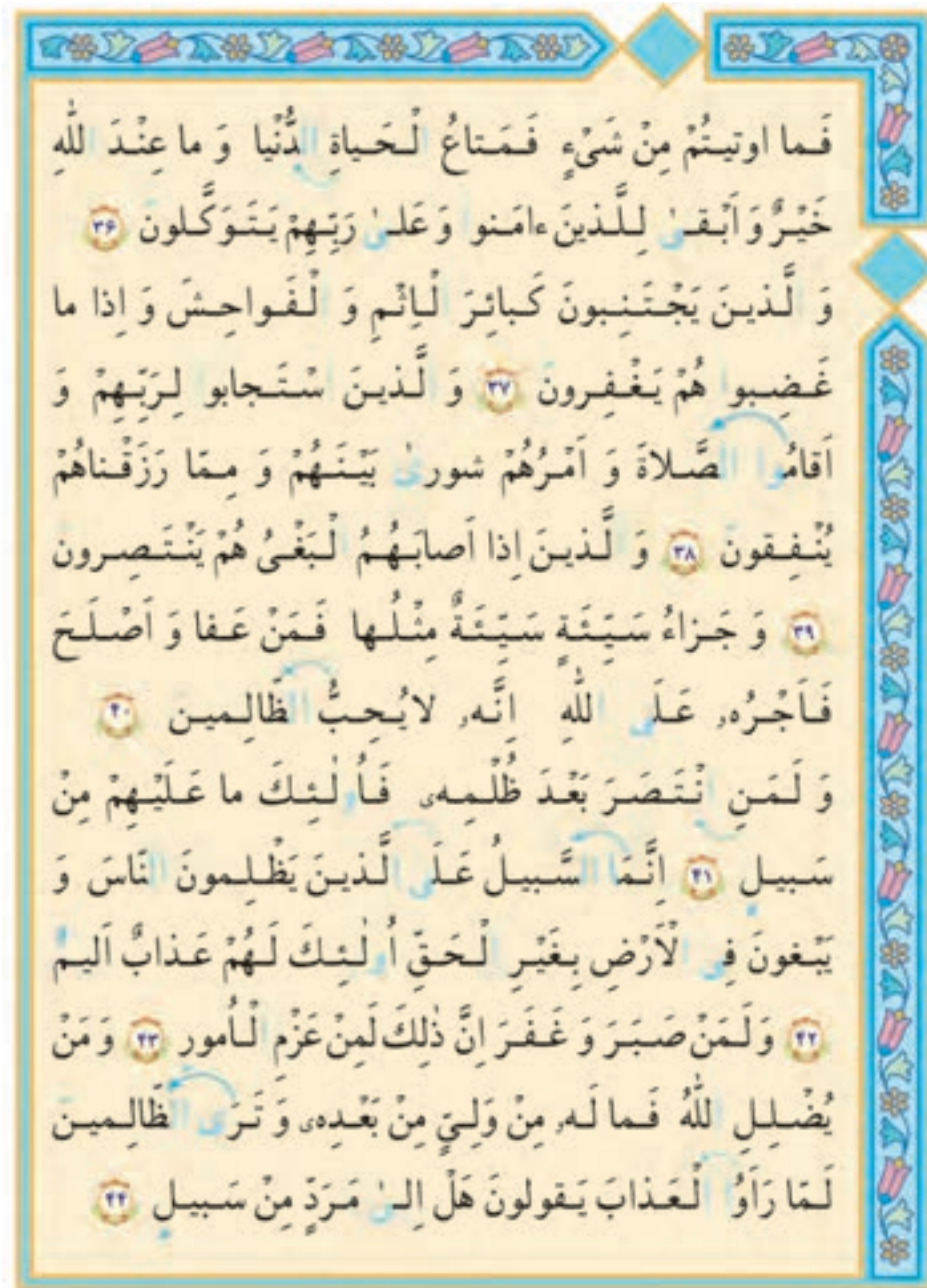 فَما اوتیتُمْ مِنْ شَیْءٍ فَمَتاعُ الْحَیاةِ الدُّنْیا وَ ما عِنْدَ اللّٰهِ
خَیْرٌ وَ اَبْقیٰ لِلَّذینَ ءامَنوا وَ عَلیٰ رَبِّهِمْ یَتَوَکَّلونَ ۳۶
وَ الَّذینَ یَجْتَنِبونَ کَبائِرَ الْاِثْمِ وَ الْفَواحِشَ وَ اِذا ما
غَضِبوا هُمْ یَغْفِرونَ ۳۷ وَ الَّذینَ اسْتَجابوا لِرَبِّهِمْ وَ
اَقامُوا الصَّلاةَ وَ اَمْرُهُمْ شوریٰ بَیْنَهُمْ وَ مِمّا رَزَقْناهُمْ
یُنْفِقونَ ۳۸ وَ الَّذینَ اِذا اَصابَهُمُ الْبَغْیُ هُمْ یَنْتَصِرونَ
۳۹ وَ جَزاءُ سَیِّئَةٍ سَیِّئَةٌ مِثْلُها فَمَنْ عَفا وَ اَصْلَحَ
فَاَجْرُهُۥ عَلَی اللّٰهِ اِنَّهُۥ لایُحِبُّ الظّالِمینَ ۴۰
وَ لَمَنِ انْتَصَرَ بَعْدَ ظُلْمِهِۦ فَاُولٰئِكَ ما عَلَیْهِمْ مِنْ
سَبیلٍ ۴۱ اِنَّمَا السَّبیلُ عَلَی الَّذینَ یَظْلِمونَ النّاسَ وَ
یَبْغونَ فِی الْاَرْضِ بِغَیْرِ الْحَقِّ اُولٰئِكَ لَهُمْ عَذابٌ اَلیمٌ
۴۲ وَ لَمَنْ صَبَرَ وَ غَفَرَ اِنَّ ذٰلِكَ لَمِنْ عَزْمِ الْاُمورِ ۴۳ وَ مَنْ
یُضْلِلِ اللّٰهُ فَما لَهُۥ مِنْ وَلِیٍّ مِنْ بَعْدِهِۦ وَ تَرَی الظّالِمینَ
لَمّا رَاَوُا الْعَذابَ یَقولونَ هَلْ اِلیٰ مَرَدٍّ مِنْ سَبیلٍ ۴۴